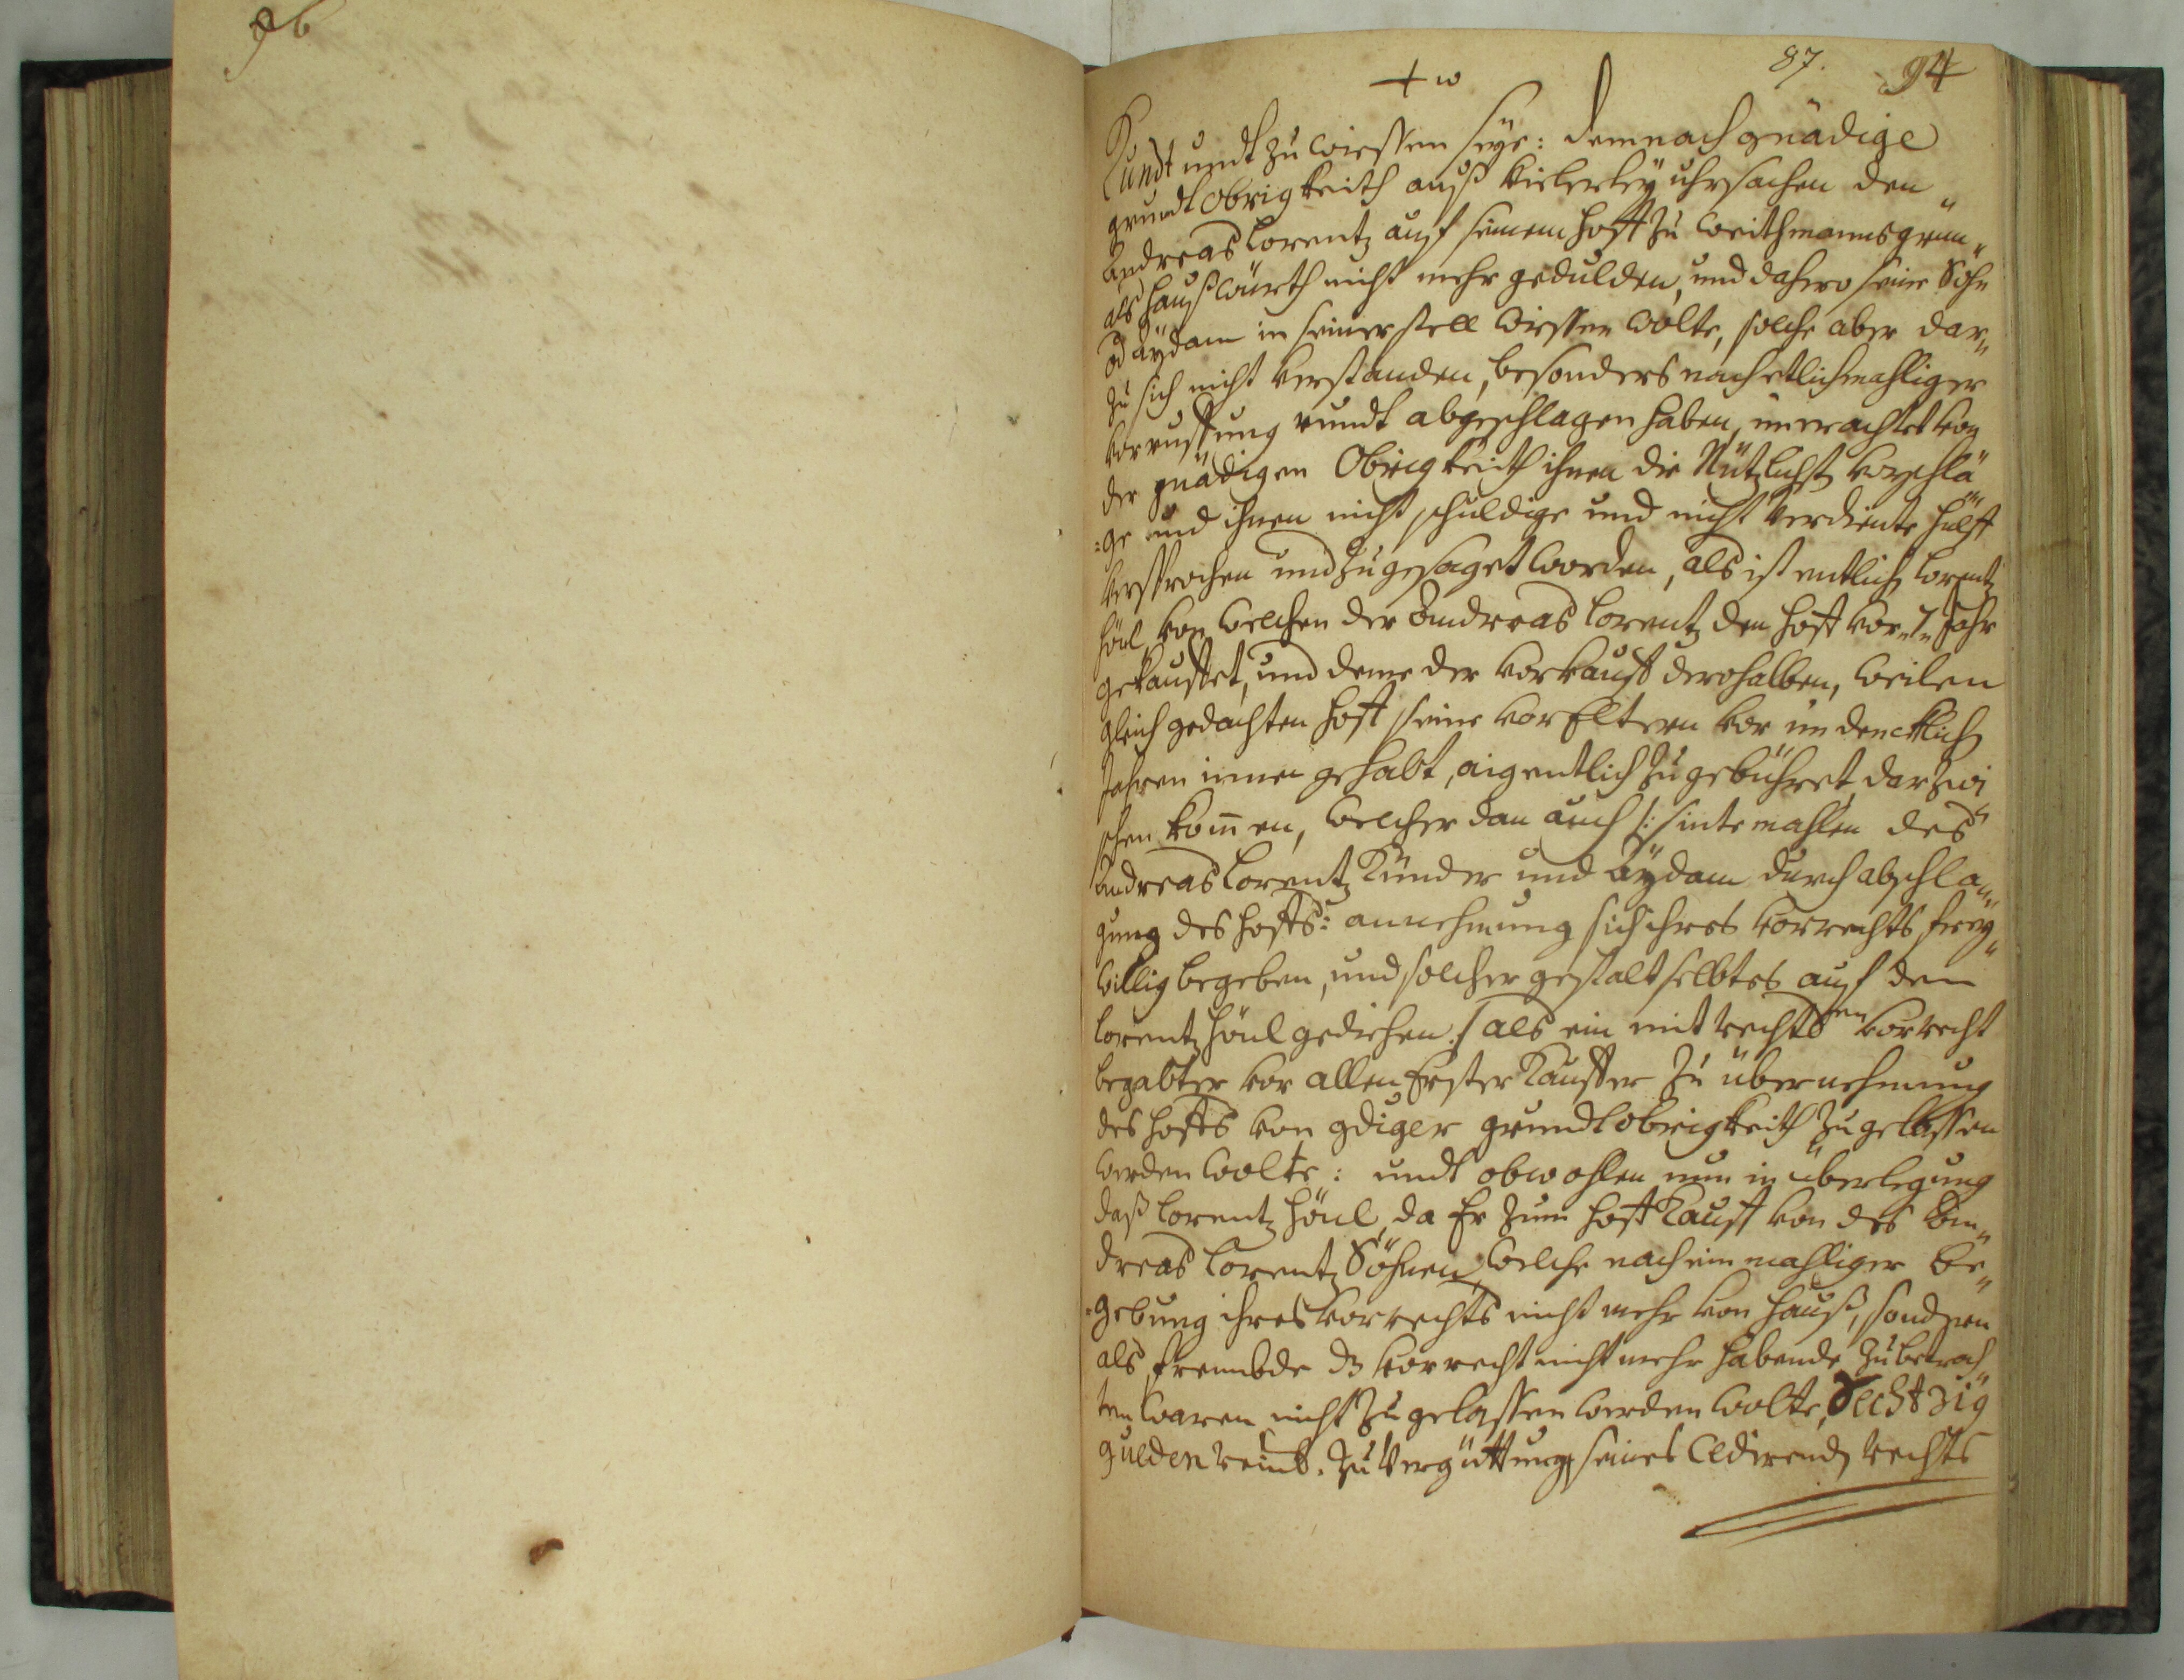 96
+ w
87. 94
Kundt undt zu wiessen seÿe: demnach gnädige
grundt Obrigkeith auß vielerleÿ uhrsachen den
Andreas Lorentz auf seinem Hoff zu Weithmannsgrün„
als Haußwürth nicht mehr gedulden, und dahero seine Söhn
od Aÿdam in seiner stell wiessen wolte, solche aber dar„
zu sich nicht verstanden, besonders nach etlichmahliger
vorruffung rundt abgeschlagen haben, unerachtet von
der gnädigen Obrigkeith ihnen die Nützlichst vorschlä„
=ge und ihnen nicht schuldige und nicht verdiente hülff
versprochen und zugesaget worden, als ist entlich Lorentz
Höul, von welchen der Andreas Lorentz den Hoff vor 7 Jahr
gekauffet, und deme der vorkauff derohalben, weilen
gleich gedachten Hoff seine vor Eltern vor undencklich
Jahren innen gehabt, aigentlich zu gebühret, darzwi„
schen kom̄en, welcher dan auch /: sintemahlen des
Andreas Lorentz Künder und Aÿdam durch abschla„
gung des Hoffs: annehmung sich ihres vorrechts freÿ„
willig begeben, und solcher gestalt selbtes auf den
Lorentz Höul gediehen :/ als ein mit rechts en vorrecht
begabter vor allen Erster Kauffer zu übernehmung
des Hoffs von gdiger grundtobrigkeith zugelassen
werden wolte: undt obwohlen nun in überlegung
daß Lorentz Höul, da Er zum Hoff Kauff von des An„
dreas Lorentz Söhnen, welche nach einmahliger Be„
=gebung ihres vorrechts nicht mehr von Hauß, sondern
als frembde dz vorrecht nicht mehr habende zu betrach„
ten waren nicht zugelassen werden wolte, Sechtzig
gulden reinl. zu Vergüttung seines Cedirend rechts